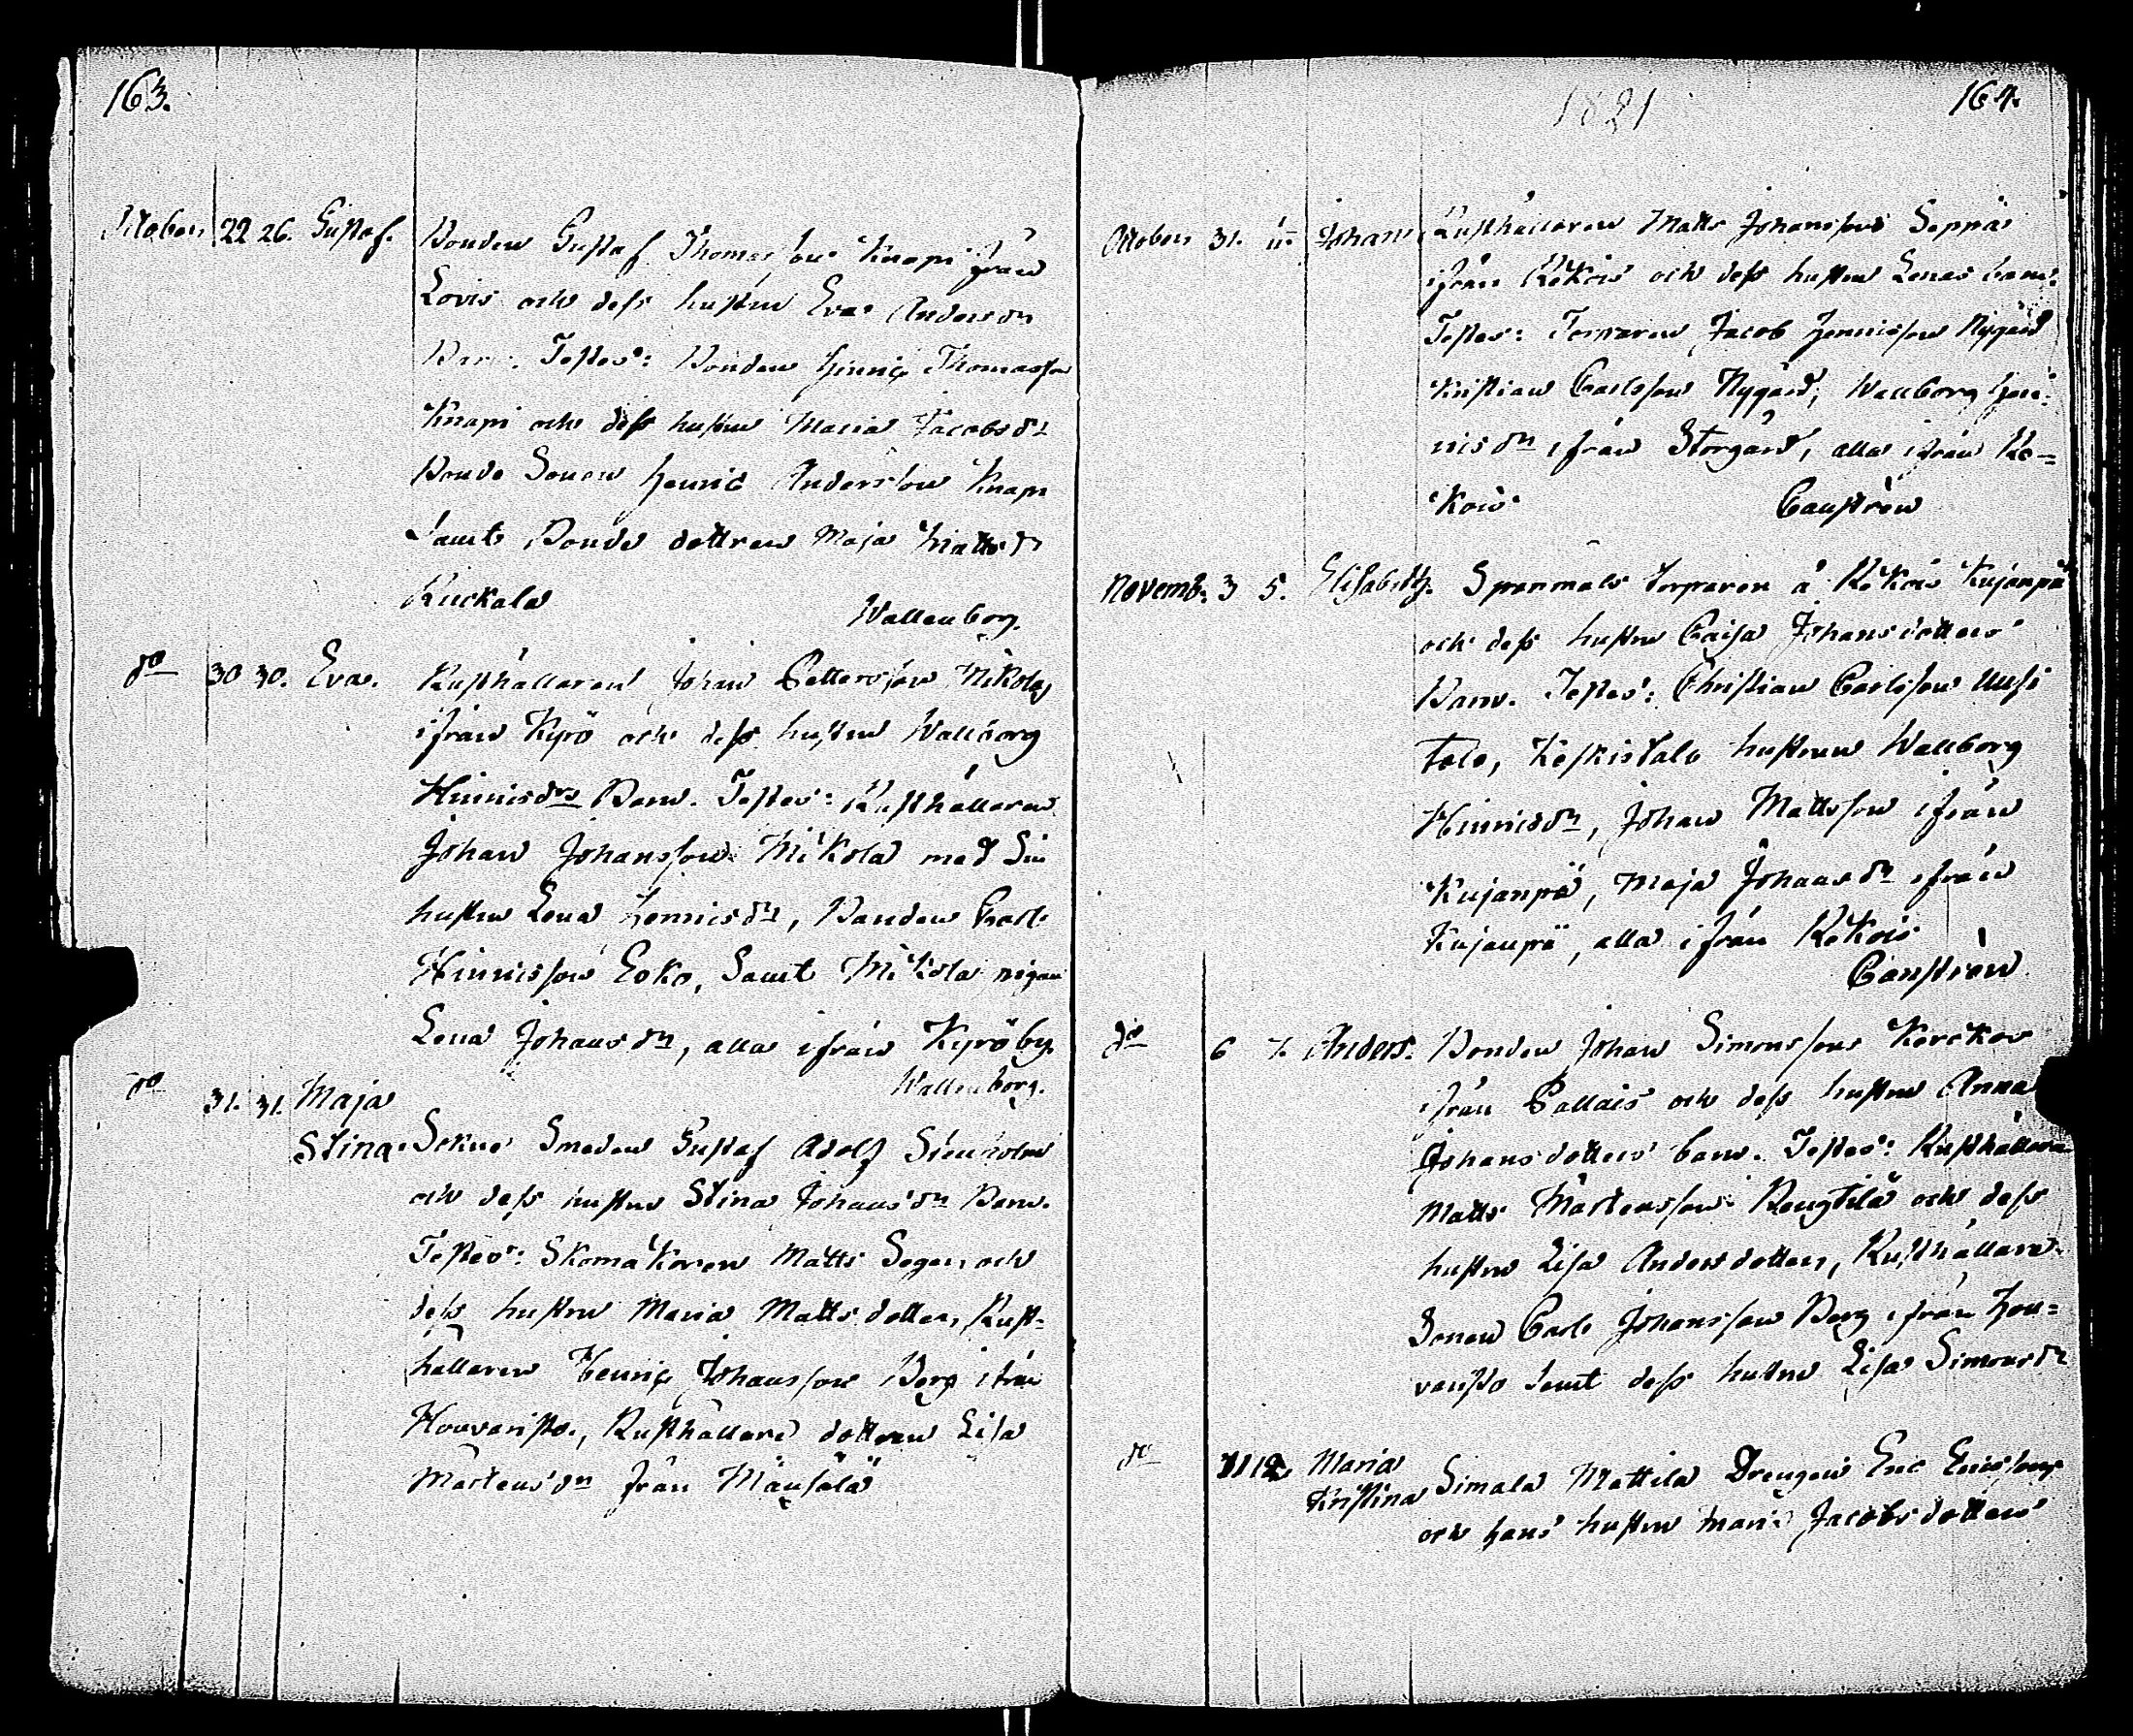 163.
October 22 26. Gustaf. Bonden Gustaf Thomassons Knapi ifrån
Lovis och dess hustru Evas Andersdr
Barn. Testes: Bonden Henric Thomasson
Knapi och dess hustru Maria Jacobsdr
Bonde Sonen Henric Andersson Knapi
samt Bonde dottren Maja Mattsdr
Kuckala
Wallenborg.
do 30 30. Eva. Rusthållaren Johan Pettersson Mikolas
ifrån Kyrö och dess hustru Wallborg
Hinricsdrs Barn. Testes: Rusthållaren
Johan Johansson Mikola med Sin
hustru Lena Henricsdr, Bonden Carl
Hinricsson Eoko, Samt Mikola pigan
Lena Johansdr, alla ifrån Kyröby.
Wallenborg.
do 31. 31. Maja
Stina. Sokne Smeden Gustaf Adolf
och dess hustru Stina Johansdr Barn.
Testes: Skomakaren Matts Seger och
dess hustru Maria Mattsdotter, Rust-
hållaren Henric Johansson Berg ifrån
Houvaristo, Rusthållare dottren Lisa
Mårtensdr från Mänsälä
1821
164.
October 31. Johan. Rusthållaren Matts Johanssons Seppäs
ifrån Kekois och dess hustru Lenas barn.
Testes: Torparen Jacob Henricsson Nygård
Kristian Carlsson Nygård, Wallborg Hen-
ricsdr ifrån Storgård, alla ifrån Ke-
kois Caustrén
Novemb. 3 5. Elisabeth. Spanmåls torparen å Kekois Kujanpä
och dess hustru Caisa Johansdotters
Barn. Testes: Christian Carlsson Uusi
talo, Keskitalo hustrun Wallborg
Hinricsdr, Johan Mattsson ifrån
Kujanpä, Maja Johansdr ifrån
Kujanpä, alla ifrån Kekois
Caustrén
do 6 7. Anders. Bonden Johan Simonssons Kerckos
ifrån Pallais och dess hustru Anna
Johansdotters barn. Testes: Rusthållaren
Matts Mårtensson Rengtilä och dess
hustru Lisa Andersdotter, Rusthållare
Sonen Carl Johansson Berg ifrån Hou-
varisto samt dess hustru Lisa Simonsdr
do 11 12. Maria
Kristina Simala Mattila Drengen Eric Ericssons
och hans hustru Maria Jacobsdotters